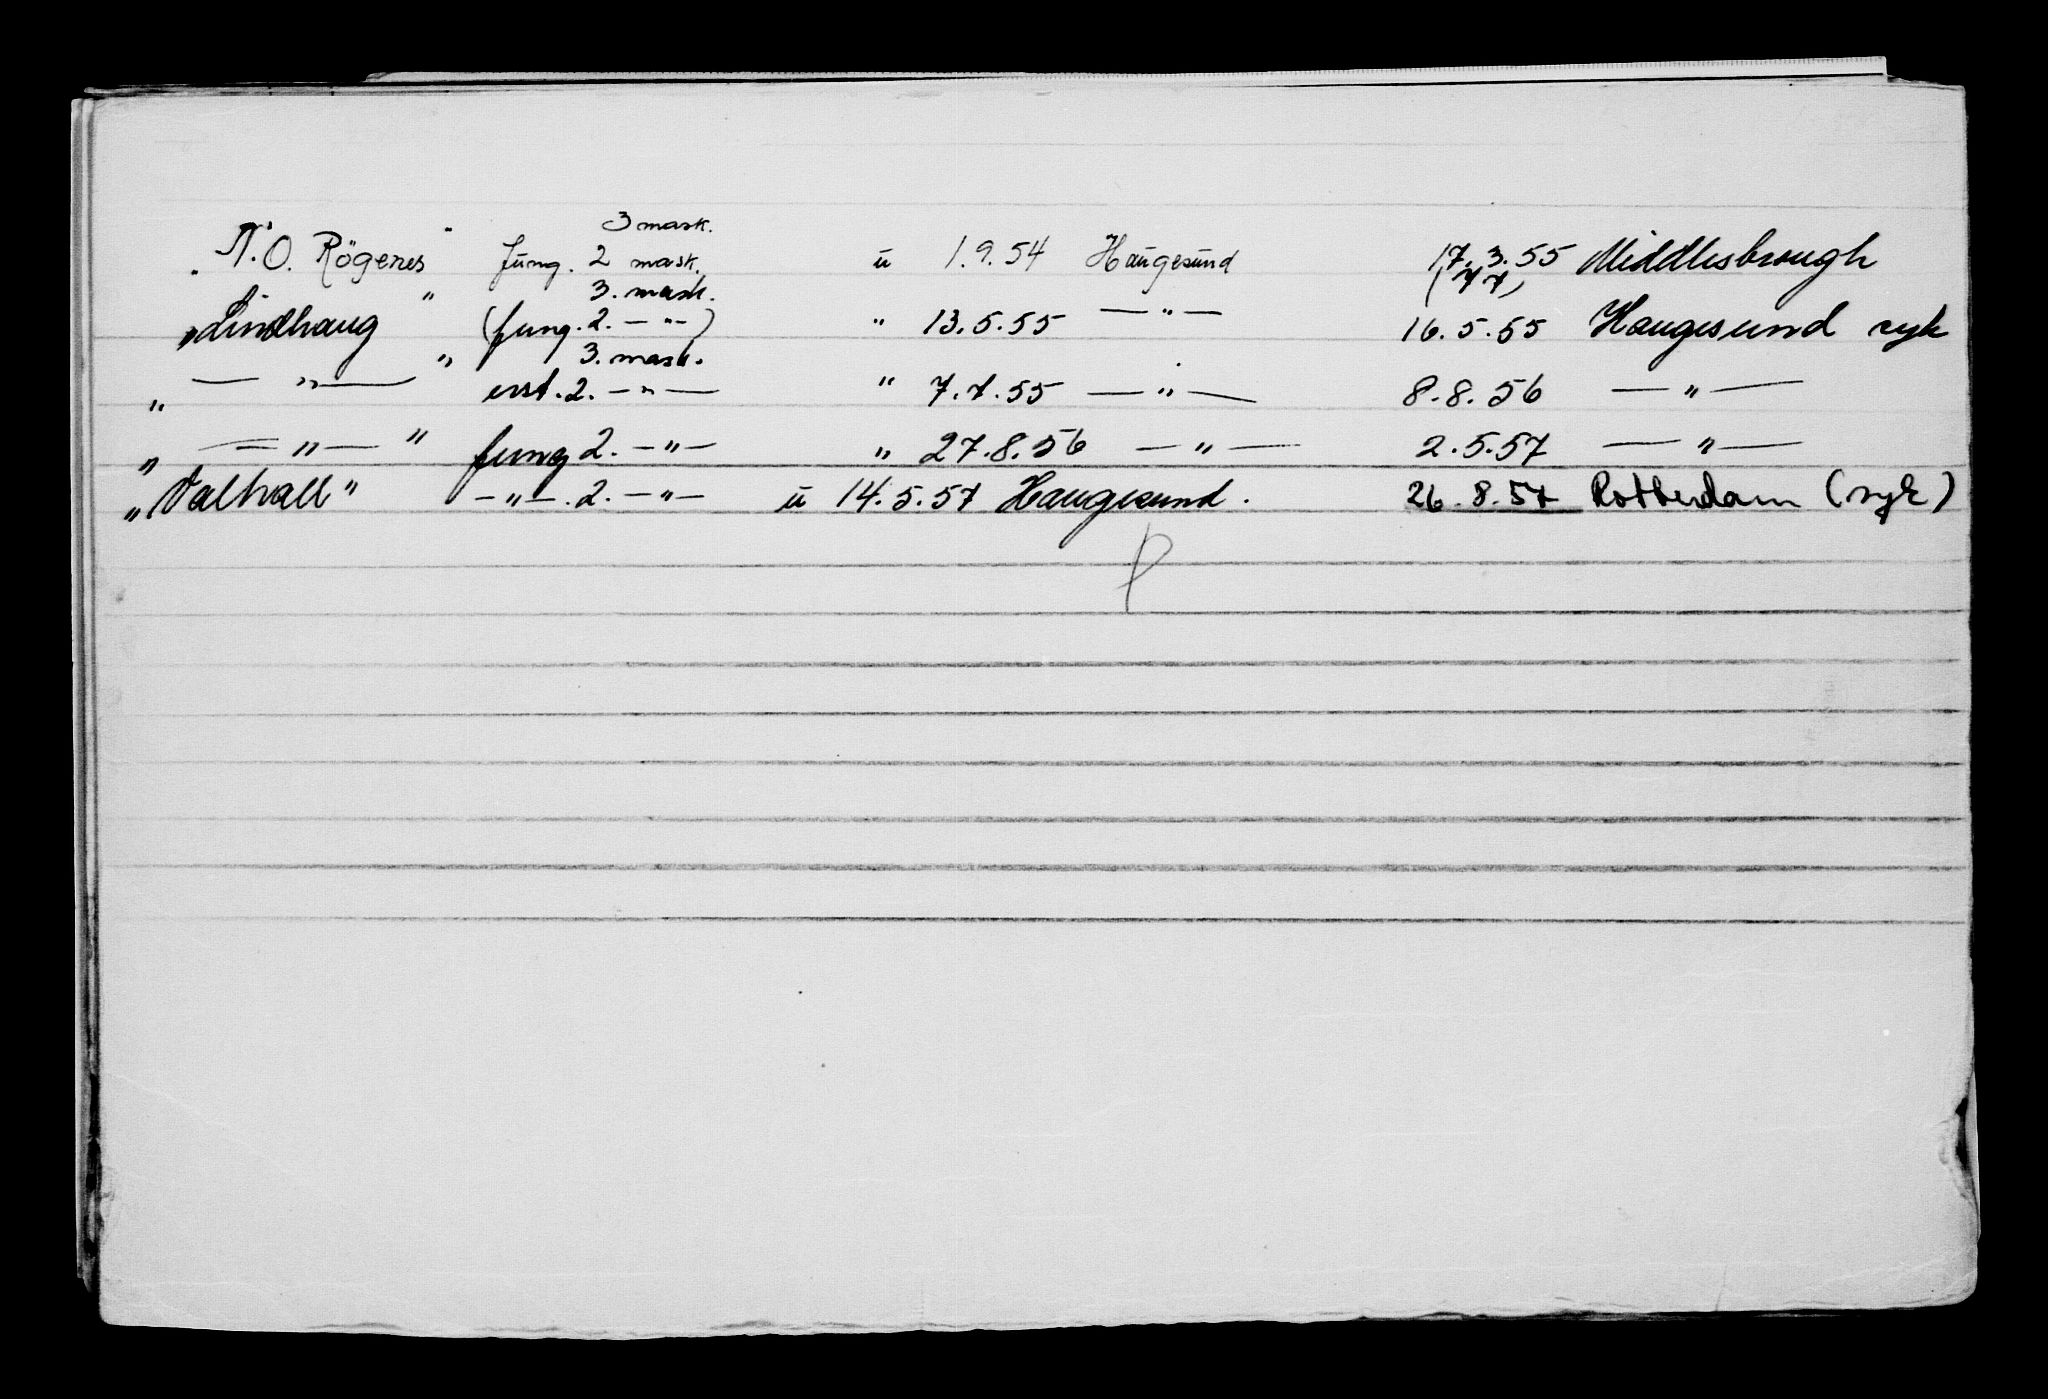 3 mask.
„N.O. Rögenes" fung. 2 mask. u 1.9.54 Haugesund 17.3.55 Middlesbrough
3. mask. (77)
„Lindhaug" (fung. 2. — " —) " 13.5.55 — " — 16.5.55 Haugesund syk
3. mask.
„ — " — " erst. 2. — " — " 7.7.55 — " — 8.8.56 — " —
„ — " — " fung 2. — " — " 27.8.56 — " — 2.5.57 — " —
„Valhall" — " —. 2. — " — u 14.5.57 Haugesund. 26.8.57 Rotterdam (syk)